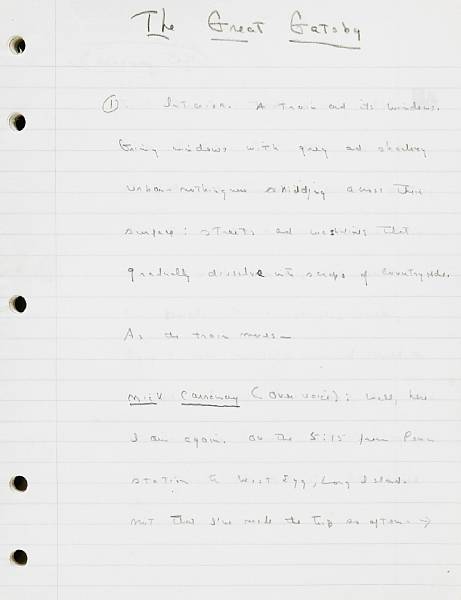 The Great Gatsby
① . Interior. A train and its windows.
Grimy windows with grey and shadowy
urban nothingness skidding across their
surface: streets and washing that
gradually dissolve into scraps of countryside.
As the train moves—
Nick Carraway (over voice): Well, here
I am again. On the 5:15 from Penn
station to West Egg, Long Island.
Not that I've made the trip so often →